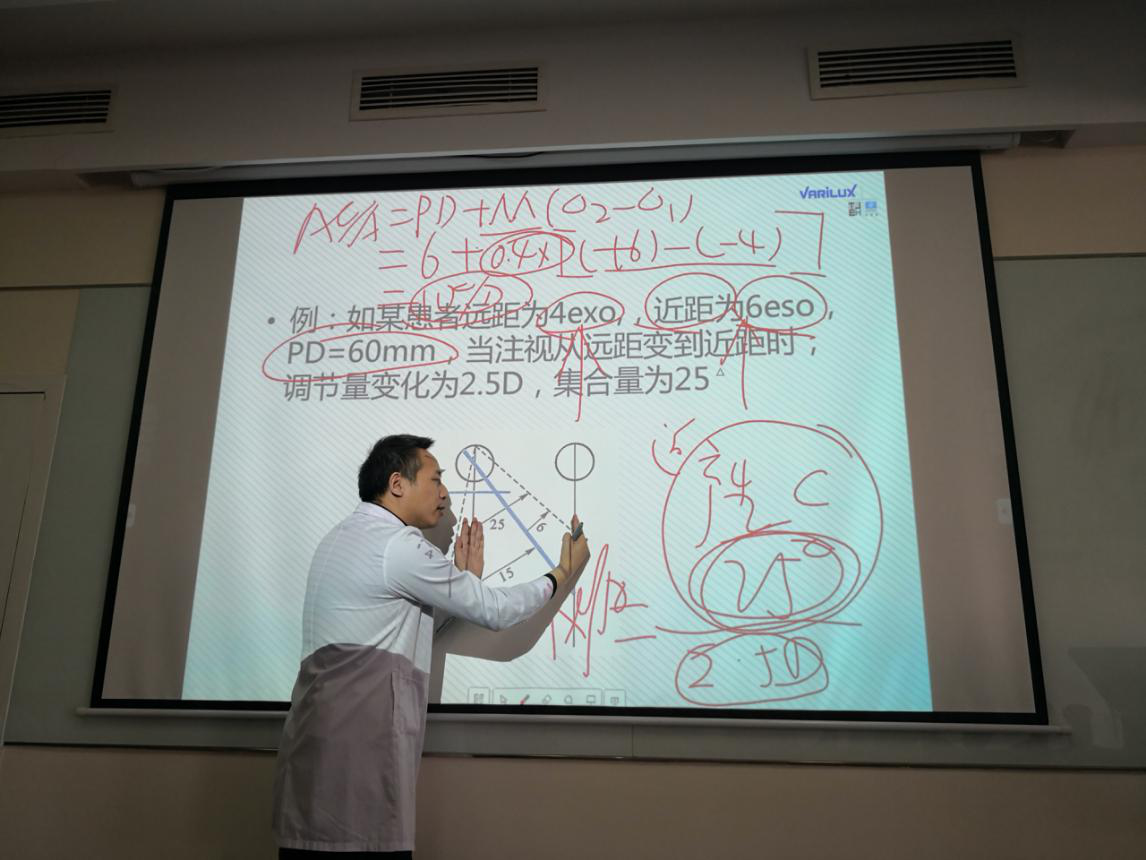 VARILUX
AC/A=PD+M(O2-O1)
=6+0.4×[(+6)-(-4)]
=
• 例：如某患者远距为4exo,，近距为6eso，
PD=60mm，当注视从远距变到近距时，
调节量变化为2.5D，集合量为25△
25
6
15
C
25
2.5D